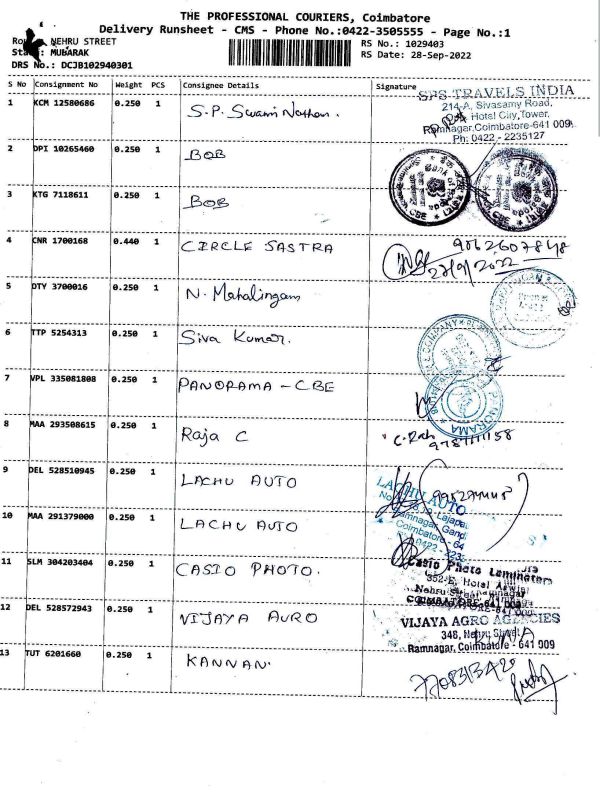 THE PROFESSIONAL COURIERS, Coimbatore
Delivery Runsheet - CMS - Phone No.:0422-3505555 - Page No.:1
NEHRU STREET RS No.: 1029403
MUBARAK RS Date: 28-Sep-2022
DRS No.: DCJB102940301
S No Consignment No Weight PCS Consignee Details Signature
1 KCM 12580686 0.250 1 S.P. Swami Nathan.
SPS TRAVELS INDIA
214-A, Sivasamy Road,
Hotel City Tower,
Ramnagar,Coimbatore-641 009
Ph: 0422 - 2235127
2 DPI 10265460 0.250 1 BOB
3 KTG 7118611 0.250 1 BOB
CBE
CBE
4 CNR 1700168 0.440 1 CIRCLE SASTRA
9862607848
27/9/2022
5 DTY 3700016 0.250 1 N. Mahalingam
6 TTP 5254313 0.250 1 Siva Kumar.
7 VPL 335081808 0.250 1 PANORAMA - CBE
PANORAMA
8 MAA 293508615 0.250 1 Raja C
9 DEL 528510945 0.250 1 LACHU AUTO
LACHU AUTO
Coimbatore - 64
10 MAA 291379000 0.250 1 LACHU AUTO
11 SLM 304203404 0.250 1 CASIO PHOTO.
Casio Photo Laminators
352-E, Hotel
Nehru Street
12 DEL 528572943 0.250 1 VIJAYA AURO
VIJAYA AGRO AGENCIES
348, Nehru Street
Ramnagar, Coimbatore - 641 009
13 TUT 6201660 0.250 1 KANNAN.